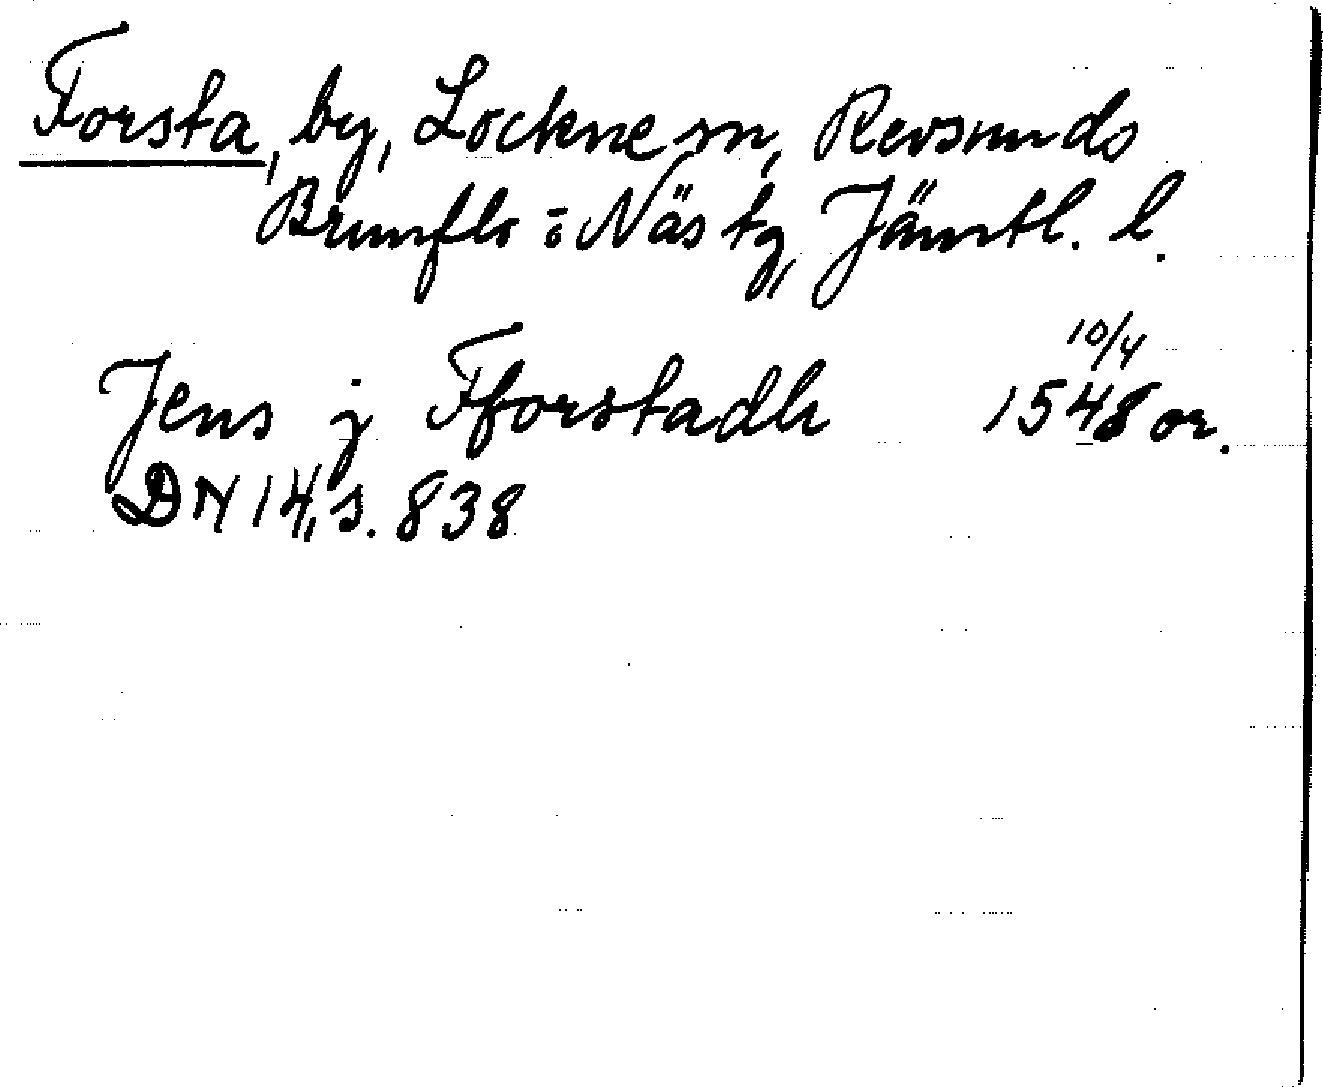 Forsta, by, Lockne sn, Revsunds
Brunflo o Näs tg, Jämtl. l.
10/4
Jens j Fforstadh 1548 or.
DN 14, s. 838